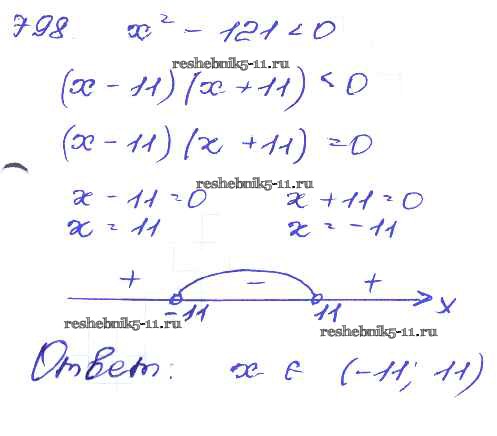 798. x² - 121 < 0
reshebnik5-11.ru
(x - 11)(x + 11) < 0
(x - 11)(x + 11) = 0
reshebnik5-11.ru
x - 11 = 0 x + 11 = 0
x = 11 x = -11
+ - +
-11 11 x
reshebnik5-11.ru reshebnik5-11.ru
Ответ: x ∈ (-11; 11)